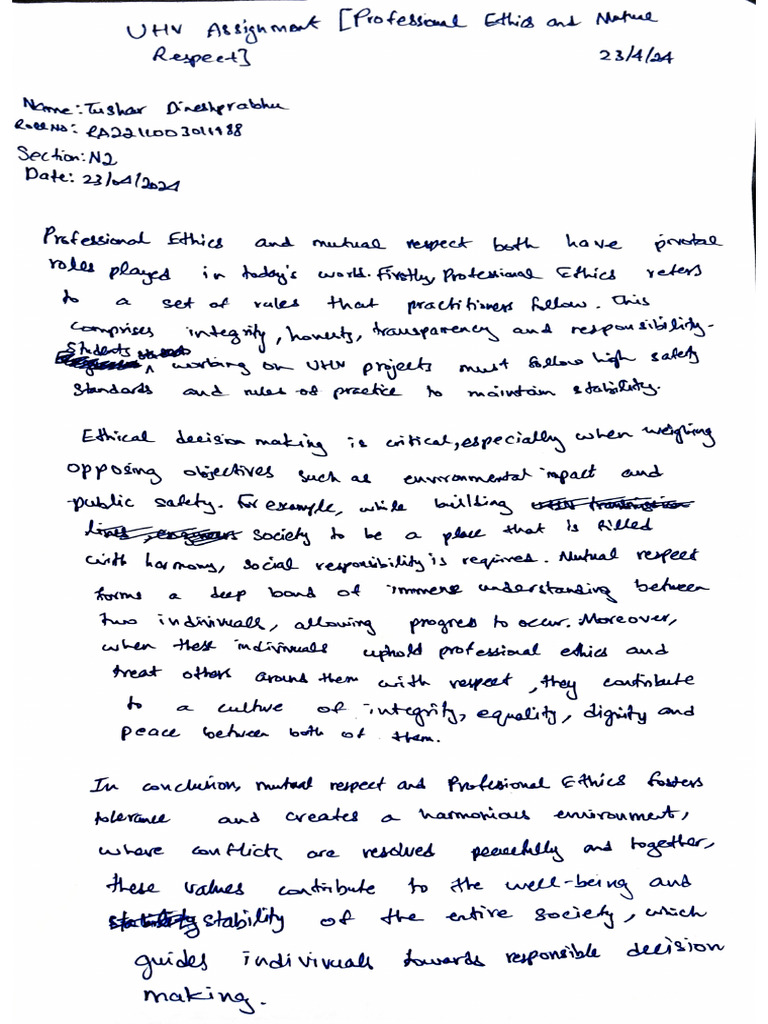 UHV Assignment [Professional Ethics and Mutual
Respect]
23/4/24
Name: Tushar Dineshprabhu
Roll No: RA2211003011988
Section: N2
Date: 23/04/2024
Professional Ethics and mutual respect both have pivotal
roles played in today's world. Firstly, Professional Ethics refers
to a set of rules that practitioners follow. This
comprises integrity, honesty, transparency and responsibility.
Students working on UHV projects must follow high safety
standards and rules of practice to maintain stability.
Ethical decision making is critical, especially when weighing
opposing objectives such as environmental impact and
public safety. For example, while building UHV transmission
lines, engineers society to be a place that is filled
with harmony, social responsibility is required. Mutual respect
forms a deep bond of immense understanding between
two indiviuals, allowing progress to occur. Moreover,
when these indiviuals uphold professional ethics and
treat others around them with respect, they contribute
to a culture of integrity, equality, dignity and
peace between both of them.
In conclusion, mutual respect and Profesional Ethics fosters
tolerance and creates a harmonious environment,
where conflicts are resolved peacefully and together,
these values contribute to the well-being and
stability of the entire society, which
guides indiviuals towards responsible decision
making.